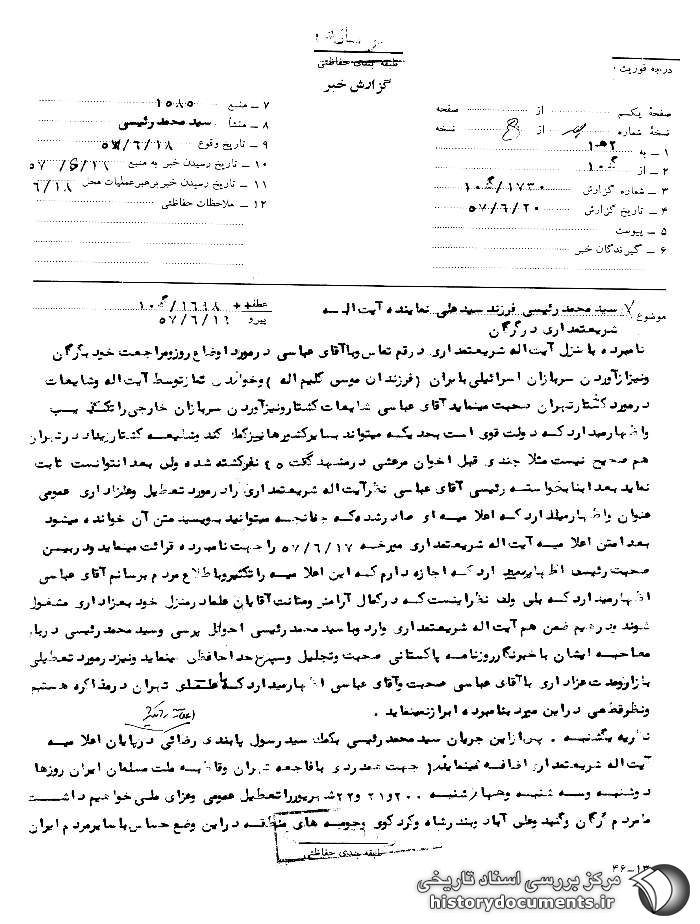 طبقه بندی حفاظتی
گزارش خبر
درجه فوریت :
۷ ـ منبع ۱۵۸۵
۸ ـ منشأ سید محمد رئیسی
۹ ـ تاریخ وقوع ۵۷/۶/۱۸
۱۰ ـ تاریخ رسیدن خبر به منبع ۵۷/۶/۱۸
۱۱ ـ تاریخ رسیدن خبر برهبر عملیات محل ۶/۱۸
۱۲ ـ ملاحظات حفاظتی
صفحهٔ یکم از صفحه
نسخهٔ شماره از نسخه
۱ ـ به ۳۱۲
۲ ـ از
۳ ـ شماره گزارش
۴ ـ تاریخ گزارش ۵۷/۶/۲۰
۵ ـ پیوست
۶ ـ گیرندگان خبر
موضوع سید محمد رئیسی فرزند سید علی نماینده آیت اله
شریعتمداری در گرگان
عطف
پیرو ۵۷/۶/۱۶
نامبرده با منزل آیت اله شریعتمداری در قم تماس و با آقای عباسی در مورد اوضاع روز و مراجعت خود بگرگان
و نیز از آوردن سربازان اسرائیلی بایران (فرزندان موسی کلیم اله) و خواندن نماز توسط آیت اله و شایعات
در مورد کشتار تهران صحبت مینماید آقای عباسی شایعات کشتار و نیز آوردن سربازان خارجی را تکذیب
و اظهار میدارد که دولت قوی است بحدیکه میتواند بسایر کشورها نیز کمک کند و شایعه کشتار زیاد در تهران
هم صحیح نیست مثلا چندی قبل اخوان مرعشی در مشهد گفت ۴۵ نفر کشته شده ولی بعد انتوانست ثابت
نماید بعد بنا بخواسته رئیسی آقای عباسی نظر آیت اله شریعتمداری را در مورد تعطیل و عزاداری عمومی
عنوان و اظهار میدارد که اعلامیه ای صادر شده که چنانچه میتوانید بنویسید متن آن خوانده میشود
بعد امتن اعلامیه آیت اله شریعتمداری مورخه ۵۷/۶/۱۷ را جهت نامبرده قرائت مینماید و در بین
صحبت رئیسی اظهار میدارد که اجازه دارم که این اعلامیه را تکثیر و باطلاع مردم برسانم آقای عباسی
اظهار میدارد که بلی ولی نظر اینست که در کمال آرامش و متانت آقایان علما در منزل خود بعزاداری مشغول
شوند در همین ضمن هم آیت اله شریعتمداری وارد و با سید محمد رئیسی احوال پرسی و سید محمد رئیسی درباره
مصاحبه ایشان با خبرنگار روزنامه پاکستانی صحبت و تجلیل و سپس خداحافظی مینماید و نیز در مورد تعطیلی
بازار و مدت عزاداری با آقای عباسی صحبت و آقای عباسی اظهار میدارد که با علمای تهران در مذاکره هستیم
و نظر قطعی در این مورد بنامبرده ابراز نمینماید .
نظریه یکشنبه . پس از این جریان سید محمد رئیسی بکمک سید رسول پابندی رضائی در پایان اعلامیه
آیت اله شریعتمداری اضافه مینمایند ( جهت همدردی با فاجعه تهران و قاطبه ملت مسلمان ایران روزها
دوشنبه و سه شنبه و چهارشنبه ۲۰ و ۲۱ و ۲۲ شهریور را تعطیل عمومی و عزای ملی خواهیم داشت
ما مردم گرگان و گنبد و علی آباد و بندرشاه و کردکوی و حومه های منطقه در این وضع حساس با سایر مردم ایران
طبقه بندی حفاظتی
۴۶-۱۳
مرکز بررسی اسناد تاریخی
historydocuments.ir